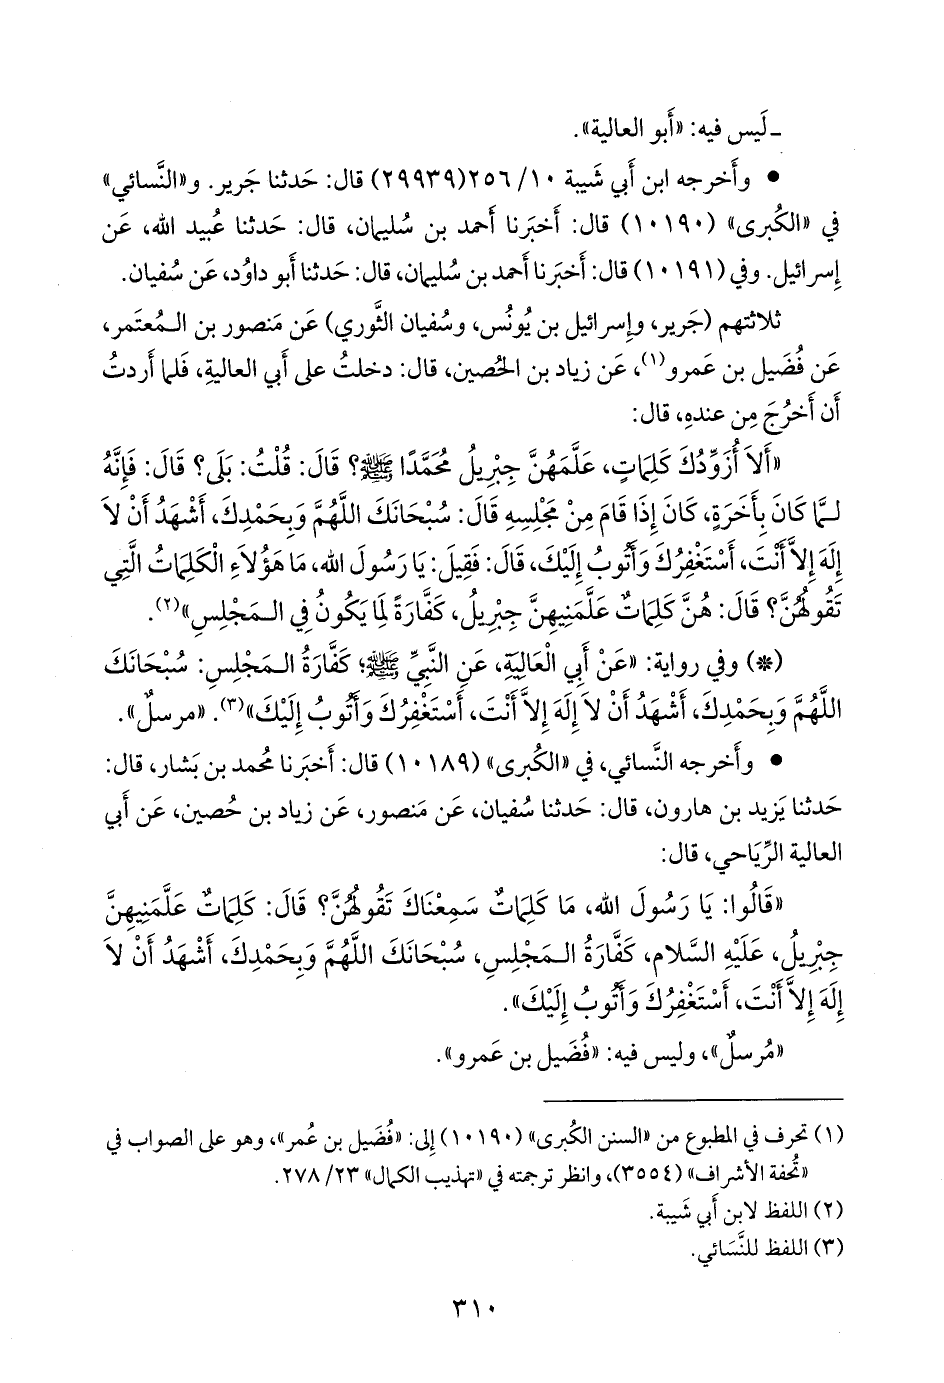 ـ لَيس فيه: «أَبو العالية».
• وأَخرجه ابن أَبي شَيبة ١٠/ ٢٥٦(٢٩٩٣٩) قال: حَدثنا جَرير. و«النَّسائي»
في «الكُبرى» (١٠١٩٠) قال: أَخبَرنا أَحمد بن سُليمان، قال: حَدثنا عُبيد الله، عَن
إِسرائيل. وفي (١٠١٩١) قال: أَخبَرنا أَحمد بن سُليمان، قال: حَدثنا أَبو داوُد، عَن سُفيان.
ثلاثتهم (جَرير، وإِسرائيل بن يُونُس، وسُفيان الثَّوري) عَن مَنصور بن الـمُعتَمر،
عَن فُضَيل بن عَمرو(١)، عَن زياد بن الحُصين، قال: دخلتُ على أَبي العالية، فَلما أَردتُ
أَن أَخرُجَ مِن عنده، قال:
«أَلاَ أُزَوِّدُكَ كَلِمَاتٍ، عَلَّمَهُنَّ جِبْرِيلُ مُحَمَّدًا ﷺ؟ قَالَ: قُلْتُ: بَلَى؟ قَالَ: فَإِنَّهُ
لـمَّا كَانَ بِأَخَرَةٍ، كَانَ إِذَا قَامَ مِنْ مَجْلِسِهِ قَالَ: سُبْحَانَكَ اللَّهُمَّ وَبِحَمْدِكَ، أَشْهَدُ أَنْ لاَ
إِلَهَ إِلاَّ أَنْتَ، أَسْتَغْفِرُكَ وَأَتُوبُ إِلَيْكَ، قَالَ: فَقِيلَ: يَا رَسُولَ الله، مَا هَؤُلاَءِ الْكَلِمَاتُ الَّتِي
تَقُولُهُنَّ؟ قَالَ: هُنَّ كَلِمَاتٌ عَلَّمَنِيهِنَّ جِبْرِيلُ، كَفَّارَةً لِمَا يَكُونُ فِي الـمَجْلِسِ»(٢).
(*) وفي رواية: «عَنْ أَبِي الْعَالِيَةِ، عَنِ النَّبِيِّ ﷺ؛ كَفَّارَةُ الـمَجْلِسِ: سُبْحَانَكَ
اللَّهُمَّ وَبِحَمْدِكَ، أَشْهَدُ أَنْ لاَ إِلَهَ إِلاَّ أَنْتَ، أَسْتَغْفِرُكَ وَأَتُوبُ إِلَيْكَ»(٣). «مرسلٌ».
• وأَخرجه النَّسائي، في «الكُبرى» (١٠١٨٩) قال: أَخبَرنا مُحمد بن بَشار، قال:
حَدثنا يَزيد بن هارون، قال: حَدثنا سُفيان، عَن مَنصور، عَن زياد بن حُصين، عَن أَبي
العالية الرِّيَاحي، قال:
«قَالُوا: يَا رَسُولَ الله، مَا كَلِمَاتٌ سَمِعْنَاكَ تَقُولُهُنَّ؟ قَالَ: كَلِمَاتٌ عَلَّمَنِيهِنَّ
جِبْرِيلُ، عَلَيْهِ السَّلام، كَفَّارَةُ الـمَجْلِسِ، سُبْحَانَكَ اللَّهُمَّ وَبِحَمْدِكَ، أَشْهَدُ أَنْ لاَ
إِلَهَ إِلاَّ أَنْتَ، أَسْتَغْفِرُكَ وَأَتُوبُ إِلَيْكَ».
«مُرسلٌ»، وليس فيه: «فُضَيل بن عَمرو».
(١) تحرف في المطبوع من «السنن الكُبرى» (١٠١٩٠) إلى: «فُضَيل بن عُمر»، وهو على الصواب في
«تُحفة الأشراف» (٣٥٥٤)، وانظر ترجمته في «تهذيب الكمال» ٢٣/ ٢٧٨.
(٢) اللفظ لابن أَبي شَيبة.
(٣) اللفظ للنَّسَائي.
٣١٠